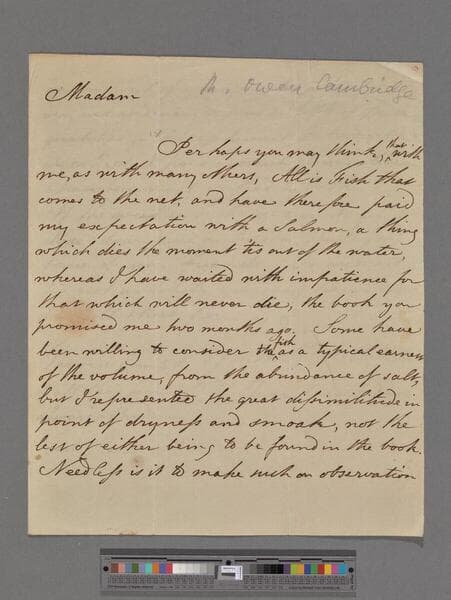 Madam
R. Owen Cambridge
Perhaps you may think, that with
me, as with many others, All is Fish that
comes to the net, and have therefore paid
my expectation with a Salmon, a thing
which dies the moment 'tis out of the water,
whereas I have waited with impatience for
that which will never die, the book you
promised me two months ago. Some have
been willing to consider the fish as a typical earnest
of the volume, from the abundance of salt,
but I represented the great dissimilitude in
point of dryness and smoak, not the
lest of either being to be found in the book.
Needless is it to make such an observation